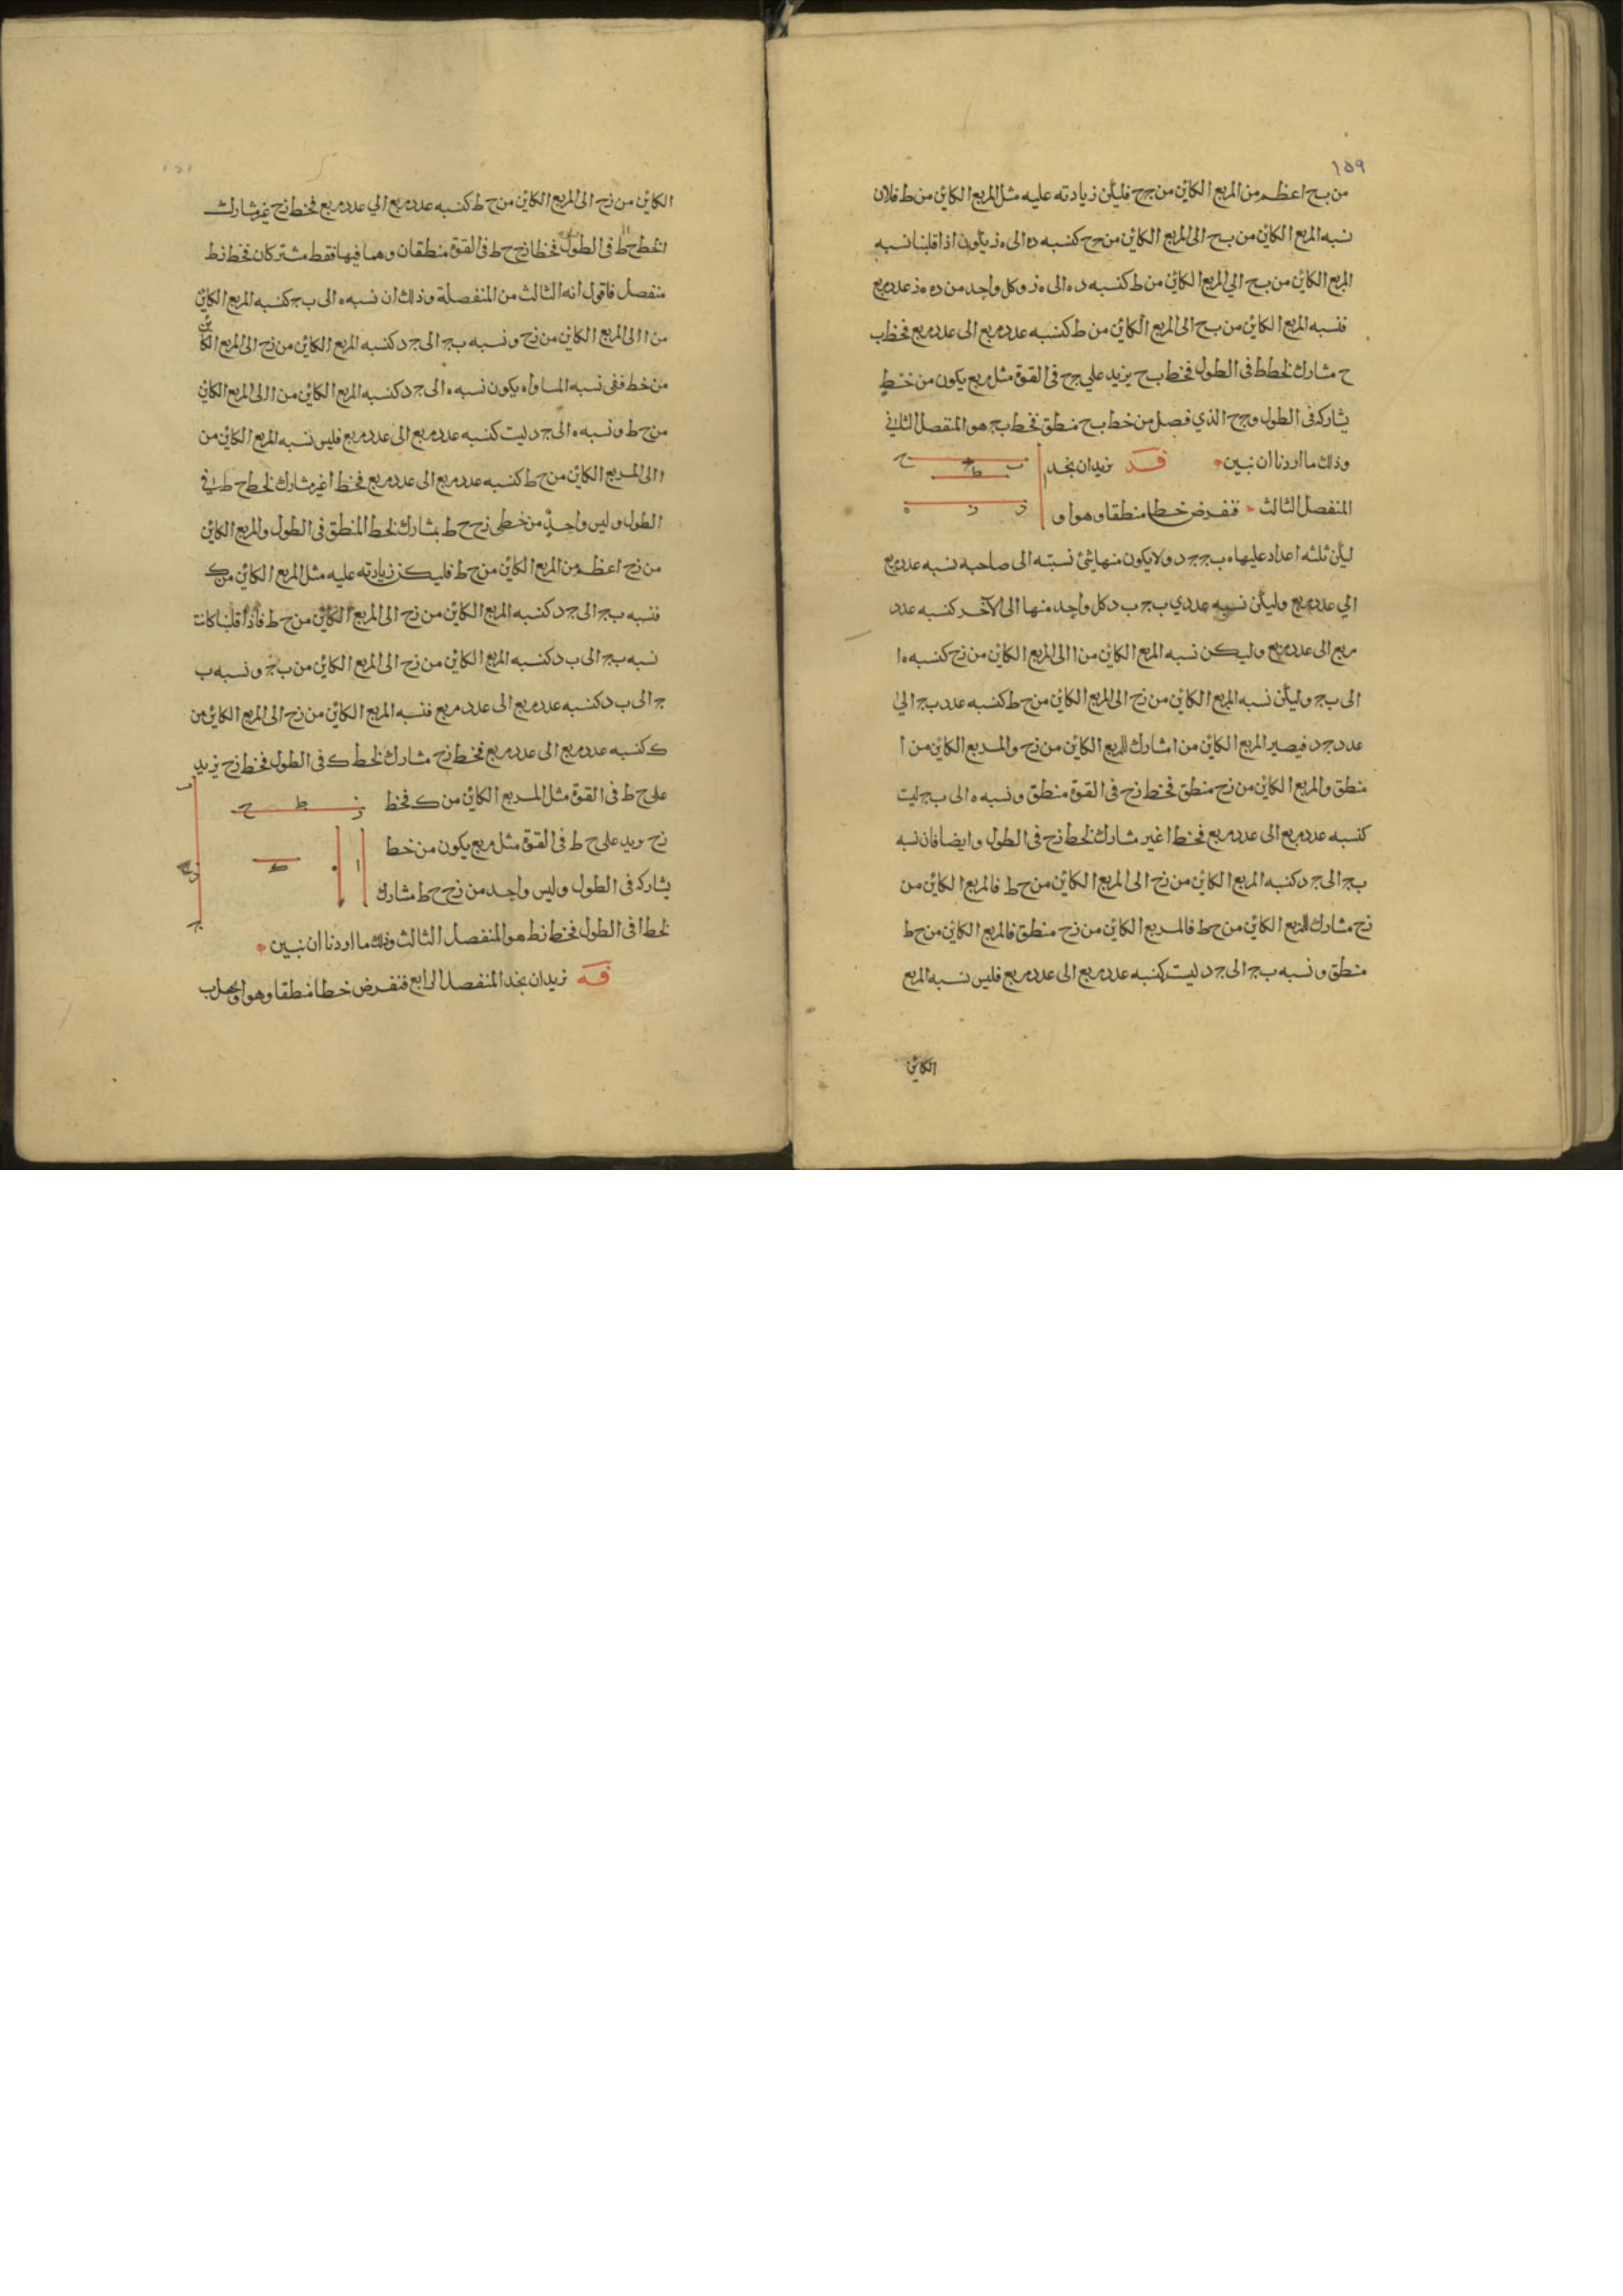 ١٥٩
من بح اعظم من المربع الكاين من جح فليكن زيادته عليه مثل المربع الكاين من ط فلان
نسبه المربع الكاين من بح الى المربع الكاين من جح كنسبه ده الى ه ز يكون اذا قلبنا نسبه
المربع الكاين من بح الي المربع الكاين من ط كنسبه د ه الى ه ز وكل واحد من ده ه ز عدد مربع
فنسبه المربع الكاين من بح الى المربع الكاين من ط كنسبه عدد مربع الى عدد مربع فخط ب
ح مشارك لخط ط فى الطول فخط بح يزيد علي جح فى القوة مثل مربع يكون من خط
يشاركه فى الطول وجح الذي فصل من خط بح منطق فخط بج هو المنفصل الثاني
وذلك ما اردنا ان نبين
فد نريدان نجد
ب ج ح
ط
ا
د ز ه
المنفصل الثالث فنفرض خطا منطقا وهو ا و
ليكن ثلثه اعداد عليها ه ب ج ج د ولا يكون منها شئ نسبته الى صاحبه نسبه عدد مربع
الي عدد مربع وليكن نسبه عددي ب ج ب د كل واحد منها الى الآخر كنسبه عدد
مربع الى عدد مربع وليكن نسبه المربع الكاين من ا الى المربع الكاين من زح كنسبه ه ا
الى ب ج وليكن نسبه المربع الكاين من زح الى المربع الكاين من ح ط كنسبه عدد ب ج الي
عدد ج د فيصير المربع الكاين من ا مشارك للمربع الكاين من زح والمربع الكاين من ا
منطق والمربع الكاين من زح منطق فخط زح فى القوة منطق ونسبه ه الى ب ج ليست
كنسبه عدد مربع الى عدد مربع فخط ا غير مشارك لخط زح فى الطول وايضا فان نسبه
ب ج الى ج د كنسبه المربع الكاين من زح الى المربع الكاين من ح ط فالمربع الكاين من
زح مشارك للمربع الكاين من حط فالمربع الكاين من زح منطق فالمربع الكاين من حط
منطق ونسبه ب ج الى ج د ليست كنسبه عدد مربع الى عدد مربع فليس نسبه المربع
الكاين
الكاين من زح الى المربع الكاين من ح ط كنسبه عدد مربع الي عدد مربع فخط زح غير مشارك
لخط حط فى الطول فخطا زح ح ط فى القوة منطقان وهما فيها فقط مشتركان فخط زط
منفصل فاقول انه الثالث من المنفصلة وذلك ان نسبه ه الى ب ج كنسبه المربع الكاين
من ا الى المربع الكاين من زح ونسبه ب ج الى ج د كنسبه المربع الكاين من زح الى المربع الكاين
من خط ففى نسبه المساواه يكون نسبه ه الى ج د كنسبه المربع الكاين من ا الى المربع الكاين
من ح ط ونسبه ه الى ج د ليست كنسبه عدد مربع الى عدد مربع فليس نسبه المربع الكاين من
ا الى المربع الكاين من ح ط كنسبه عدد مربع الى عدد مربع فخط ا غير مشارك لخط ح ط في
الطول وليس واحد من خطى زح ح ط بمشارك لخط المنطق فى الطول والمربع الكاين
من زح اعظم من المربع الكاين من ح ط فليكن زيادته عليه مثل المربع الكاين من ك
فنسبه ب ج الى ج د كنسبه المربع الكاين من زح الى المربع الكاين من ح ط فاذا قلبنا كانت
نسبه ب ج الى ب د كنسبه المربع الكاين من زح الى المربع الكاين من ب ج ونسبه ب
ج الى ب د كنسبه عدد مربع الى عدد مربع فنسبه المربع الكاين من زح الى المربع الكاين من
ك كنسبه عدد مربع الى عدد مربع فخط زح مشارك لخط ك فى الطول فخط زح يزيد
على ح ط فى القوة مثل المربع الكاين من ك فخط
زح يزيد على ح ط فى القوة مثل مربع يكون من خط
يشاركه فى الطول وليس واحد من زح حط مشارك
ز ط ح
ب
ا ه
ك
د
ج
لخط ا فى الطول فخط زط هو المنفصل الثالث وذلك ما اردنا ان نبين
فه نريدان نجد المنفصل الرابع فنفرض خطا منطقا وهو ا